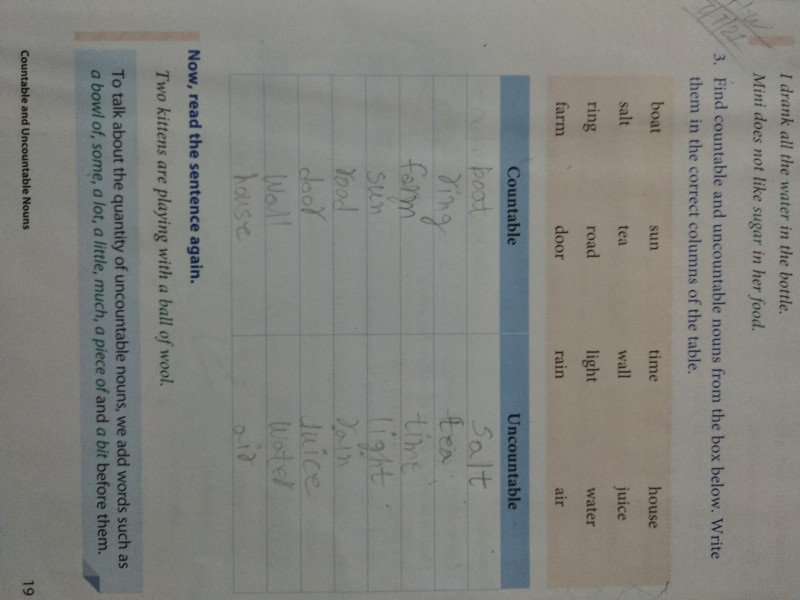 I drank all the water in the bottle.
Mini does not like sugar in her food.
3. Find countable and uncountable nouns from the box below. Write
them in the correct columns of the table.
boat sun time house
salt tea wall juice
ring road light water
farm door rain air
Countable Uncountable
boat salt
ring tea
farm time
sun light
road rain
door Juice
Wall Water
house air
Now, read the sentence again.
Two kittens are playing with a ball of wool.
To talk about the quantity of uncountable nouns, we add words such as
a bowl of, some, a lot, a little, much, a piece of and a bit before them.
Countable and Uncountable Nouns 19